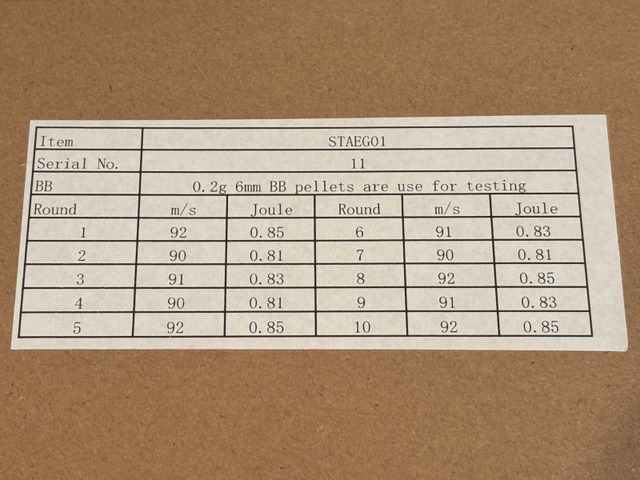 Item STAEG01
Serial No. 11
BB 0.2g 6mm BB pellets are use for testing
Round m/s Joule Round m/s Joule
1 92 0.85 6 91 0.83
2 90 0.81 7 90 0.81
3 91 0.83 8 92 0.85
4 90 0.81 9 91 0.83
5 92 0.85 10 92 0.85